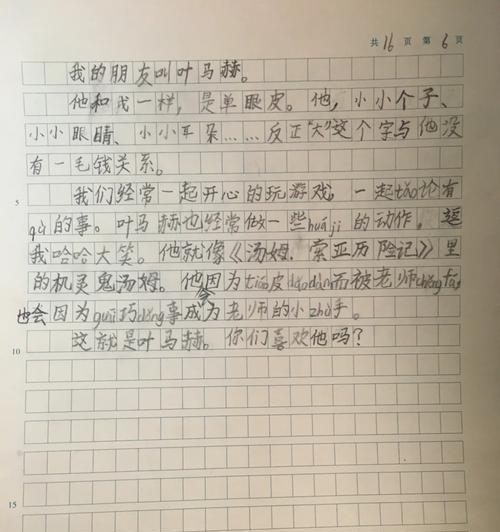 共16页 第6页
我的朋友叫叶马赫。
他和我一样，是单眼皮。他，小小个子、
小小眼睛、小小耳朵……反正“大”这个字与他没
有一毛钱关系。
5
我们经常一起开心的玩游戏，一起tǎo论有
qù的事。叶马赫也经常做一些huáji的动作，逗
我哈哈大笑。他就像《汤姆·索亚历险记》里
的机灵鬼汤姆。他会因为tiáo皮dǎodàn而被老师chěng fá，
也会因为guāi巧dǒng事成为老师的小zhù手。
10
这就是叶马赫。你们喜欢他吗？
15